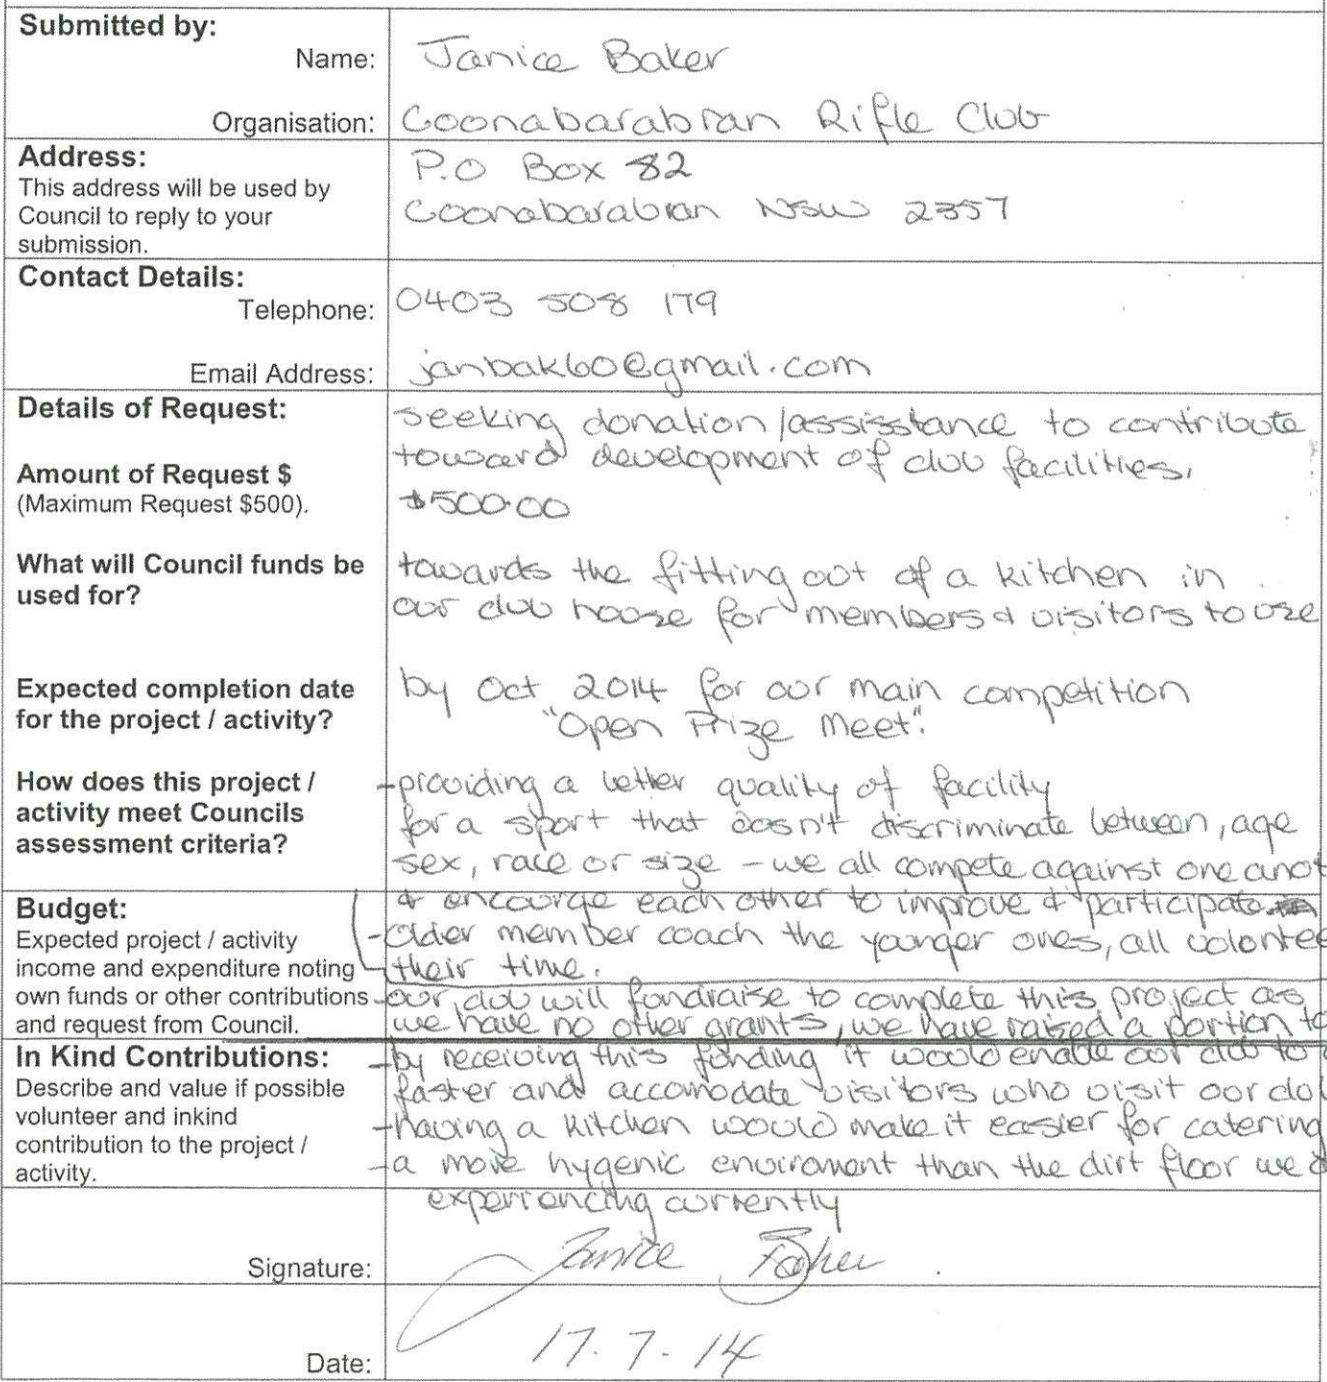 Submitted by:
Name: Janice Baker
Organisation: Coonabarabran Rifle Club
Address:
This address will be used by
Council to reply to your
submission.
P.O Box 82
Coonabarabran NSW 2357
Contact Details:
Telephone: 0403 508 179
Email Address: janbak60@gmail.com
Details of Request:
seeking donation/assisstance to contribute
toward development of club facilities.
Amount of Request $
(Maximum Request $500).
$500.00
What will Council funds be
used for?
towards the fitting out of a kitchen in
our club house for members & visitors to use
Expected completion date
for the project / activity?
by Oct 2014 for our main competition
"Open Prize Meet".
How does this project /
activity meet Councils
assessment criteria?
-providing a better quality of facility
for a sport that dosn't discriminate between, age
sex, race or size - we all compete against one anot
& encourge each other to improve & participate
-older member coach the younger ones, all volontee
their time.
Budget:
Expected project / activity
income and expenditure noting
own funds or other contributions
and request from Council.
-our club will fundraise to complete this project as
we have no other grants, we have raised a portion to
In Kind Contributions:
Describe and value if possible
volunteer and inkind
contribution to the project /
activity.
-by receiving this funding it would enable our club to
faster and accomodate visitors who visit our clu
-having a kitchen would make it easier for catering
-a more hygenic enviroment than the dirt floor we
experiencing currently
Signature: Janice Baker
Date: 17.7.14